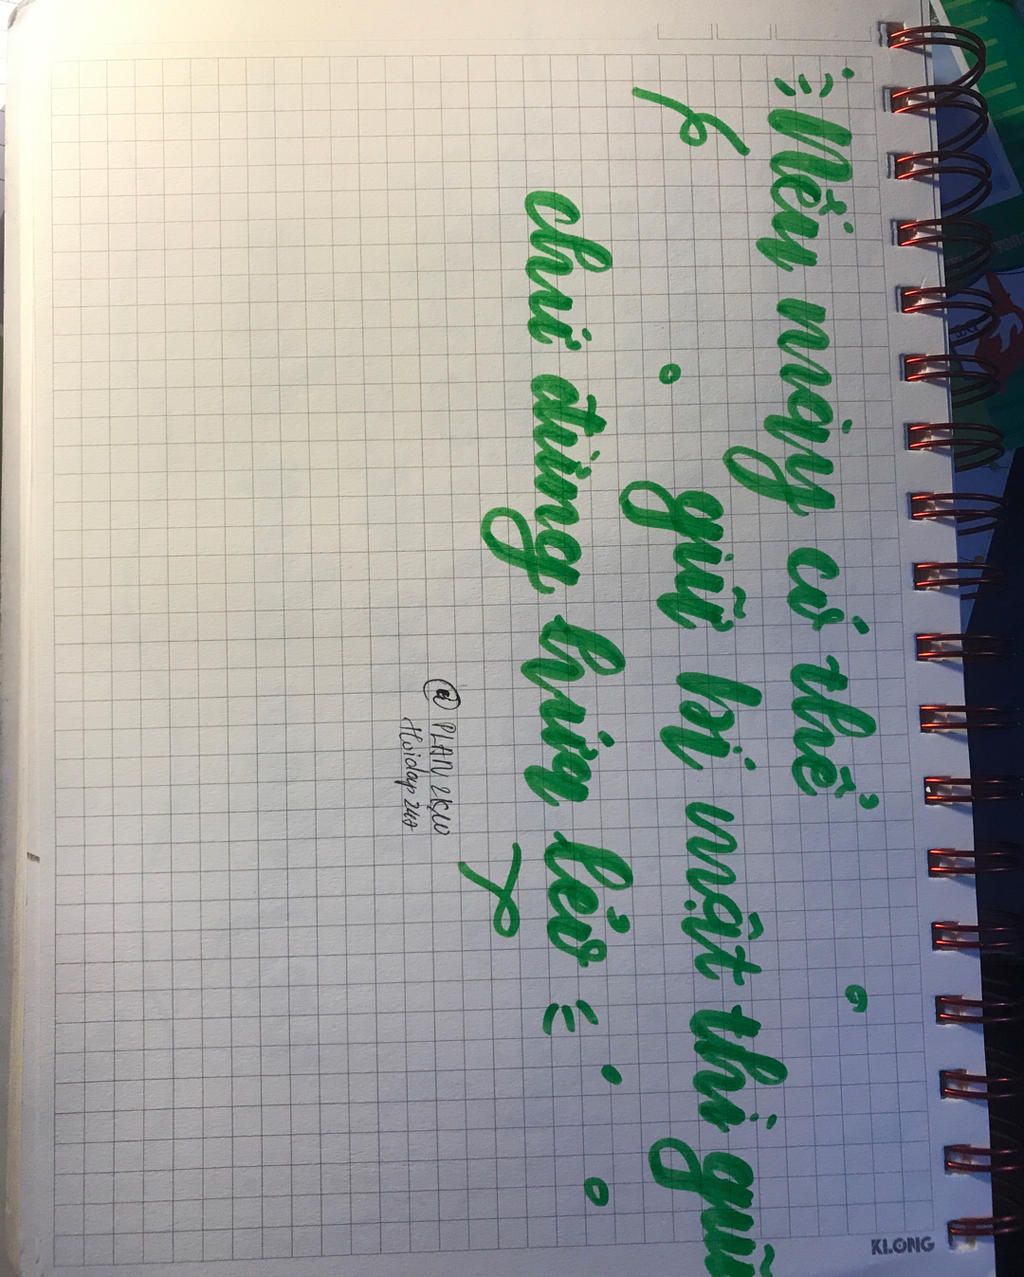 Nếu ngày có thể
giữ bí mật thì giữ
chứ đừng hứa lèo
@ PLAN 2K10
Hoidap 247
KLONG